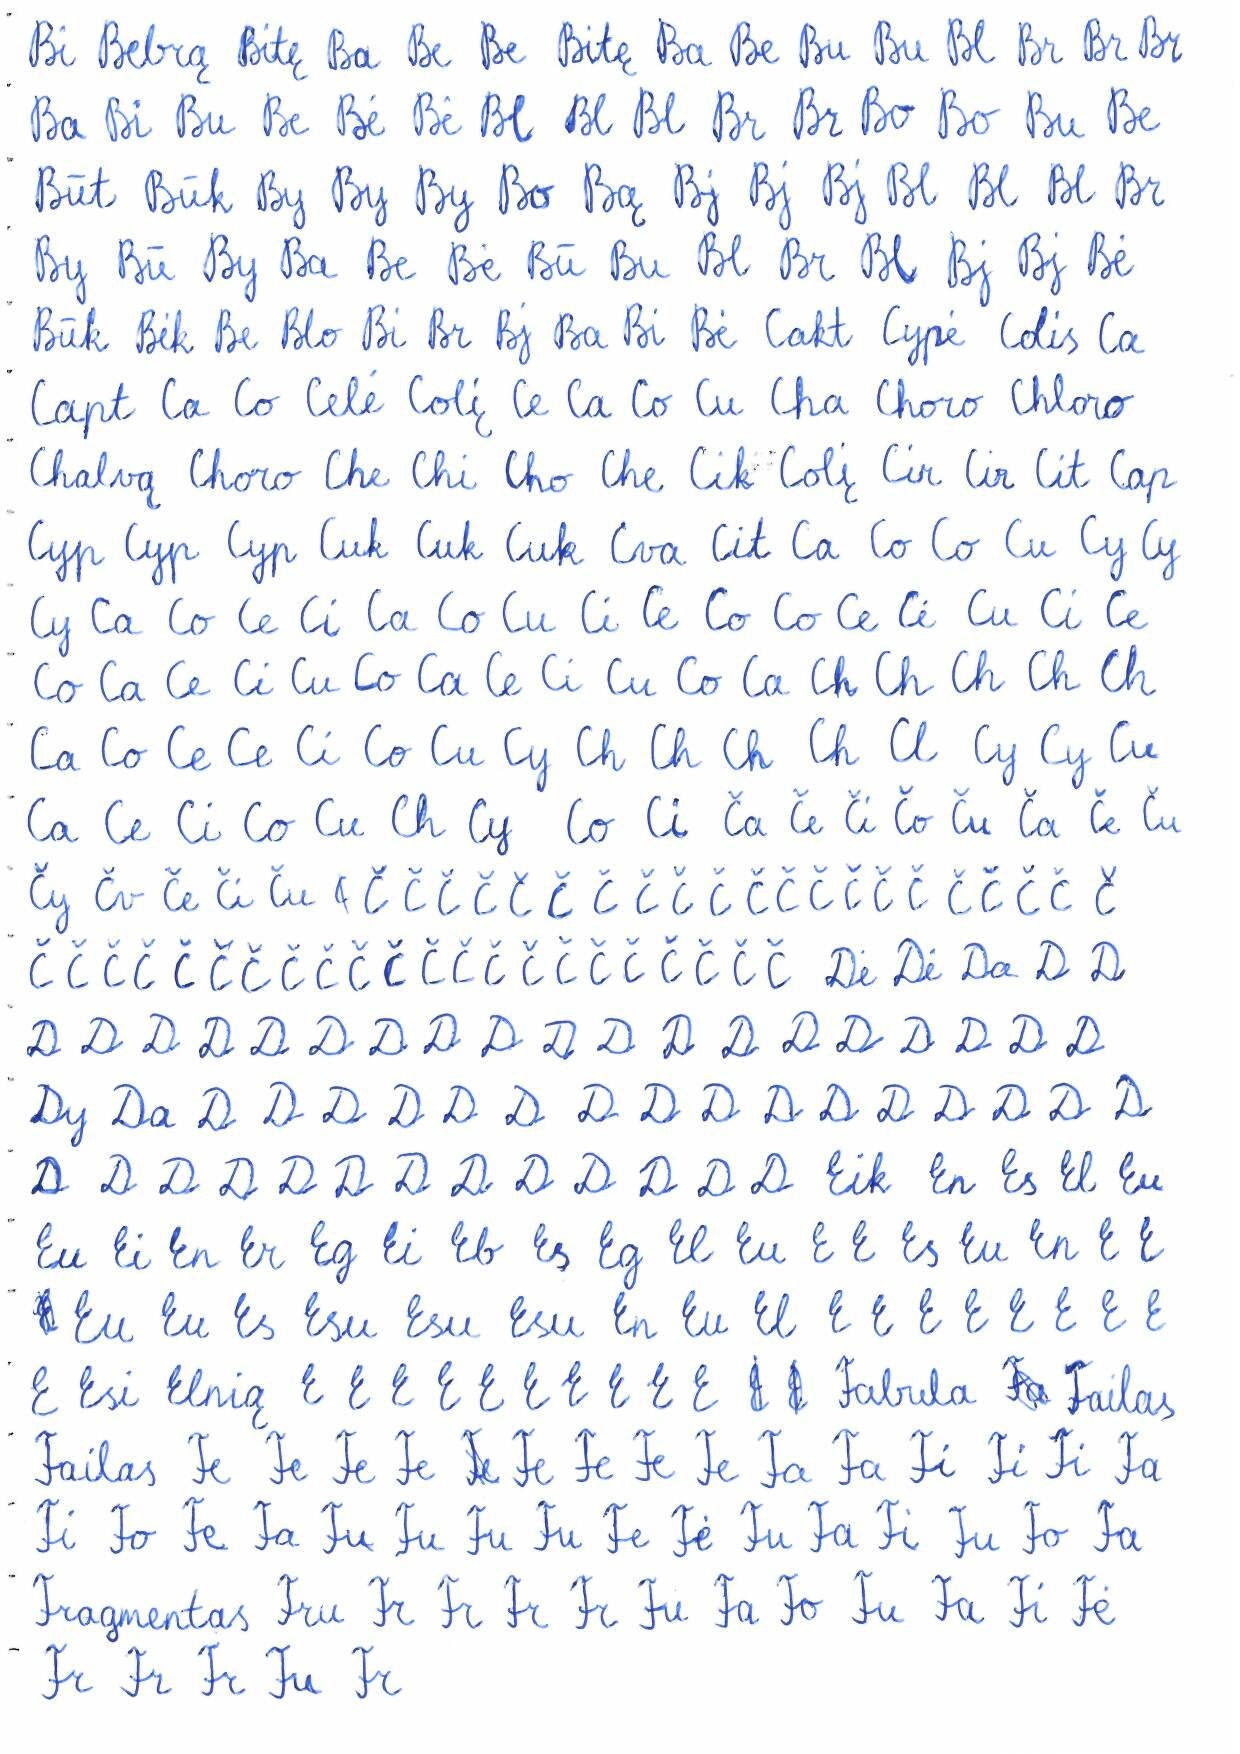 Bi Bebrą Bitę Ba Be Be Bitę Ba Be Bu Bu Bl Br Br Br
Ba Bi Bu Be Bė Bė Bl Bl Bl Br Br Bo Bo Bu Be
Būt Būk By By By Bo Bą Bj Bj Bj Bl Bl Bl Br
By Bū By Ba Be Bė Bū Bu Bl Br Bl Bj Bj Bė
Būk Bėk Be Blo Bi Br Bj Ba Bi Bė Cakt Cypė Colis Ca
Capt Ca Co Celė Colį Ce Ca Co Cu Cha Choro Chloro
Chalvą Choro Che Chi Cho Che Cik Colį Cir Cir Cit Cap
Cyp Cyp Cyp Cuk Cuk Cuk Cva Cit Ca Co Co Cu Cy Cy
Cy Ca Co Ce Ci Ca Co Cu Ci Ce Co Co Ce Cė Cu Ci Ce
Co Ca Ce Ci Cu Co Ca Ce Ci Cu Co Ca Ch Ch Ch Ch Ch
Ca Co Ce Ce Ci Co Cu Cy Ch Ch Ch Ch Cl Cy Cy Cu
Ca Ce Ci Co Cu Ch Cy Co Ci Ča Če Či Čo Ču Ča Če Ču
Čy Čv Če Či Ču Č Č Č Č Č Č Č Č Č Č Č Č Č Č Č Č Č Č Č Č
Č Č Č Č Č Č Č Č Č Č Č Č Č Č Č Č Č Č Č Č Č Č Dė DėA D D
D D D D D D D D D D D D D D D D D D D
Dy Da D D D D D D D D D D D D D D D D
D D D D D D D D D D D D D Eik En Es El Eu
Eu Ei En Er Eg Ei Eb Es Eg El Eu E E Es Eu En E E
Eu Eu Es Esu Esu Esu En Eu El E E E E E E E E
E Esi Elnią E E E E E E E E E E Fabula Failas
Failas Fe Fe Fe Fe Fe Fe Fe Fe Fa Fa Fi Fi Fi Fa
Fi Fo Fe Fa Fu Fu Fu Fu Fe Fė Fu Fa Fi Fu Fo Fa
Fragmentas Fru Fr Fr Fr Fr Fu Fa Fo Fu Fa Fi Fė
Fr Fr Fr Fu Fr